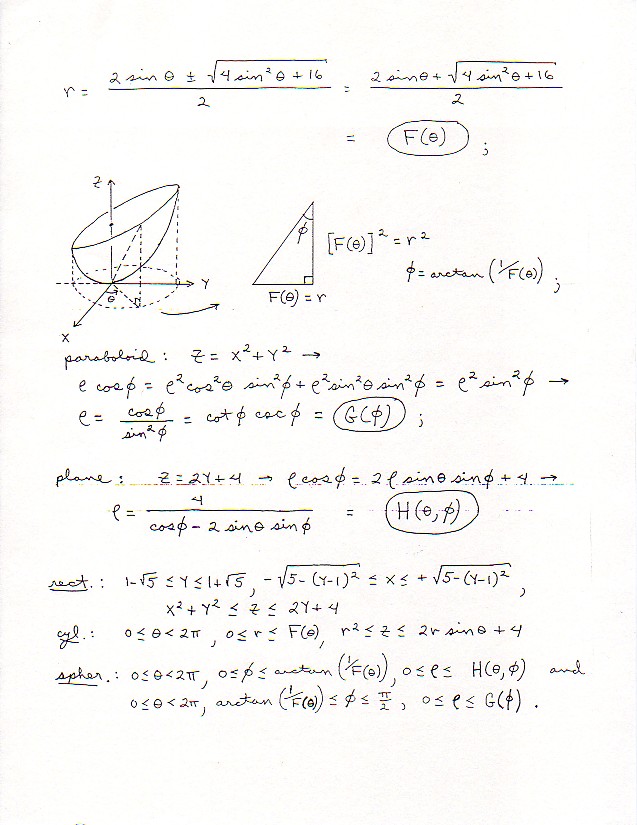 r = (2 sin θ ± √(4 sin² θ + 16)) / 2 = (2 sin θ + √(4 sin² θ + 16)) / 2
= F(θ) ;
Z
Y
X
θ
φ
[F(θ)]² = r²
φ = arctan (1/F(θ)) ;
F(θ) = r
paraboloid : Z = X² + Y² →
ρ cos φ = ρ² cos² θ sin² φ + ρ² sin² θ sin² φ = ρ² sin² φ →
ρ = cos φ / sin² φ = cot φ csc φ = G(φ) ;
plane : Z = 2Y + 4 → ρ cos φ = 2 ρ sin θ sin φ + 4 →
ρ = 4 / (cos φ - 2 sin θ sin φ) = H(θ, φ)
rect. : 1-√5 ≤ Y ≤ 1+√5 , -√(5-(Y-1)²) ≤ X ≤ +√(5-(Y-1)²) ,
X² + Y² ≤ Z ≤ 2Y + 4
cyl. : 0 ≤ θ < 2π , 0 ≤ r ≤ F(θ) , r² ≤ Z ≤ 2r sin θ + 4
spher. : 0 ≤ θ < 2π , 0 ≤ φ ≤ arctan (1/F(θ)) , 0 ≤ ρ ≤ H(θ, φ) and
0 ≤ θ < 2π , arctan (1/F(θ)) ≤ φ ≤ π/2 , 0 ≤ ρ ≤ G(φ) .